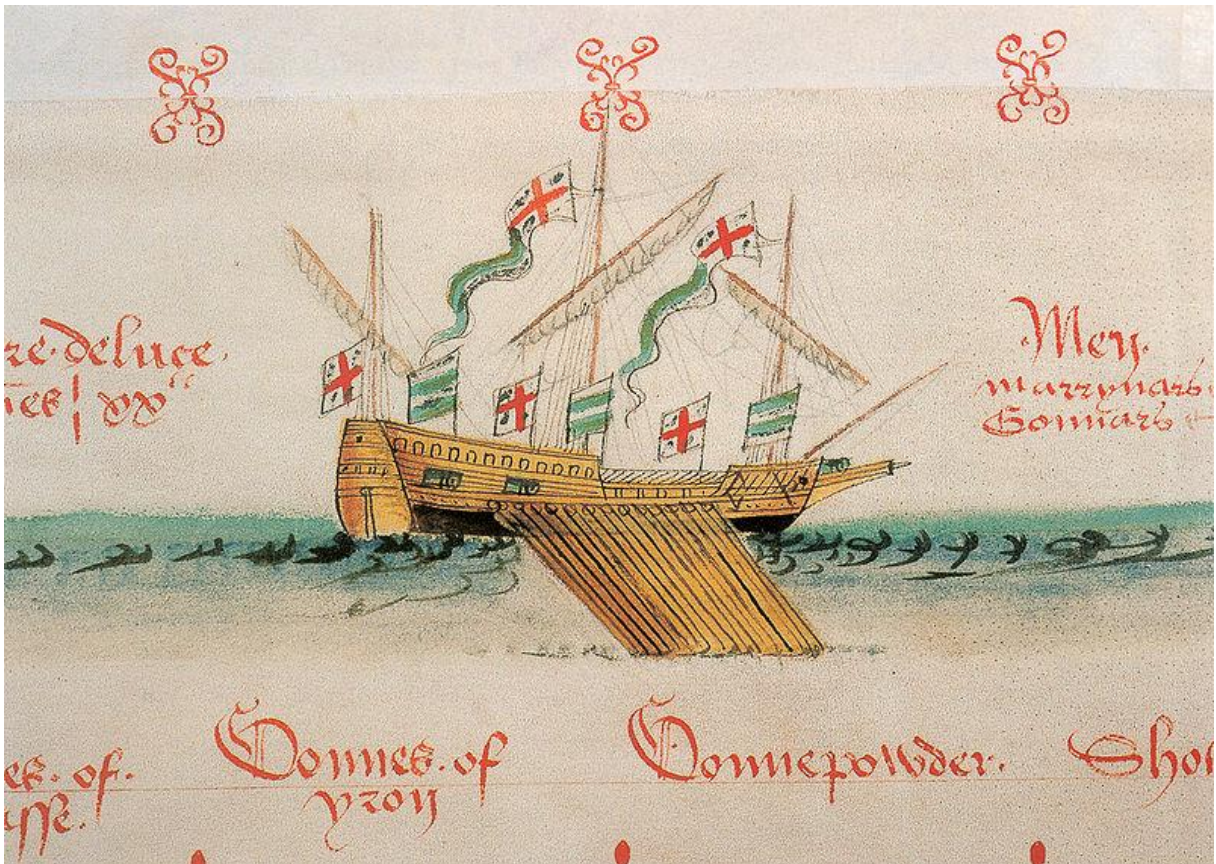 re·deluce·
nes | xx
Mey·
marrynars·
Gonnars
es· of·
sse·
Gonnes· of
yron
Gonnepowder·
Sho